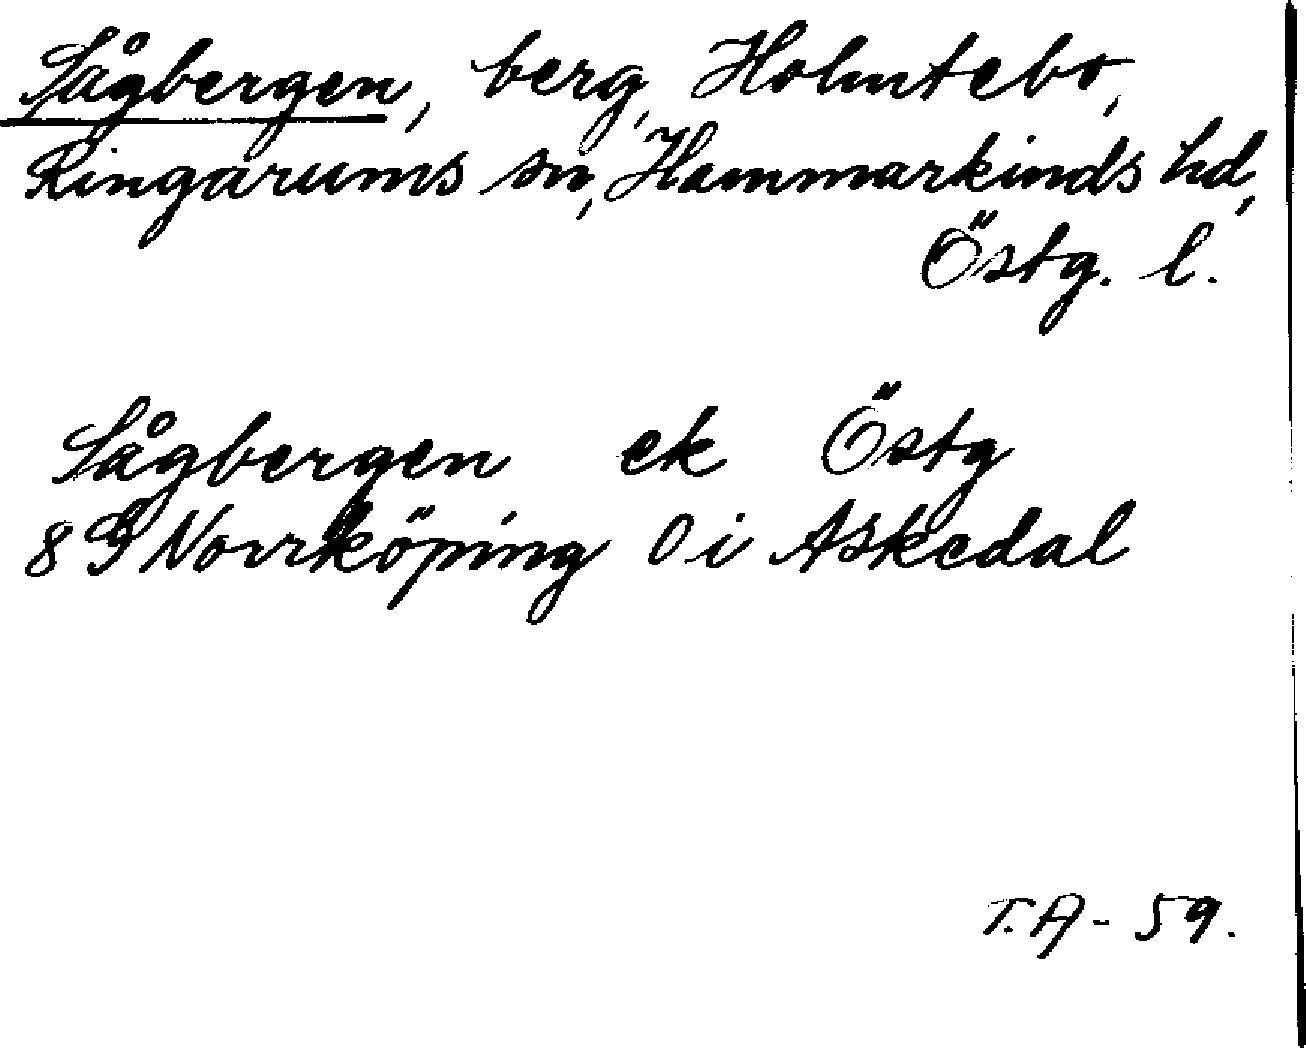 Sågbergen, berg, Holmtebo,
Ringarums sn, Hammarkinds hd,
Östg. l.
Sågbergen ek Östg
8 G Norrköping 0 i Askedal
T.A - 59.